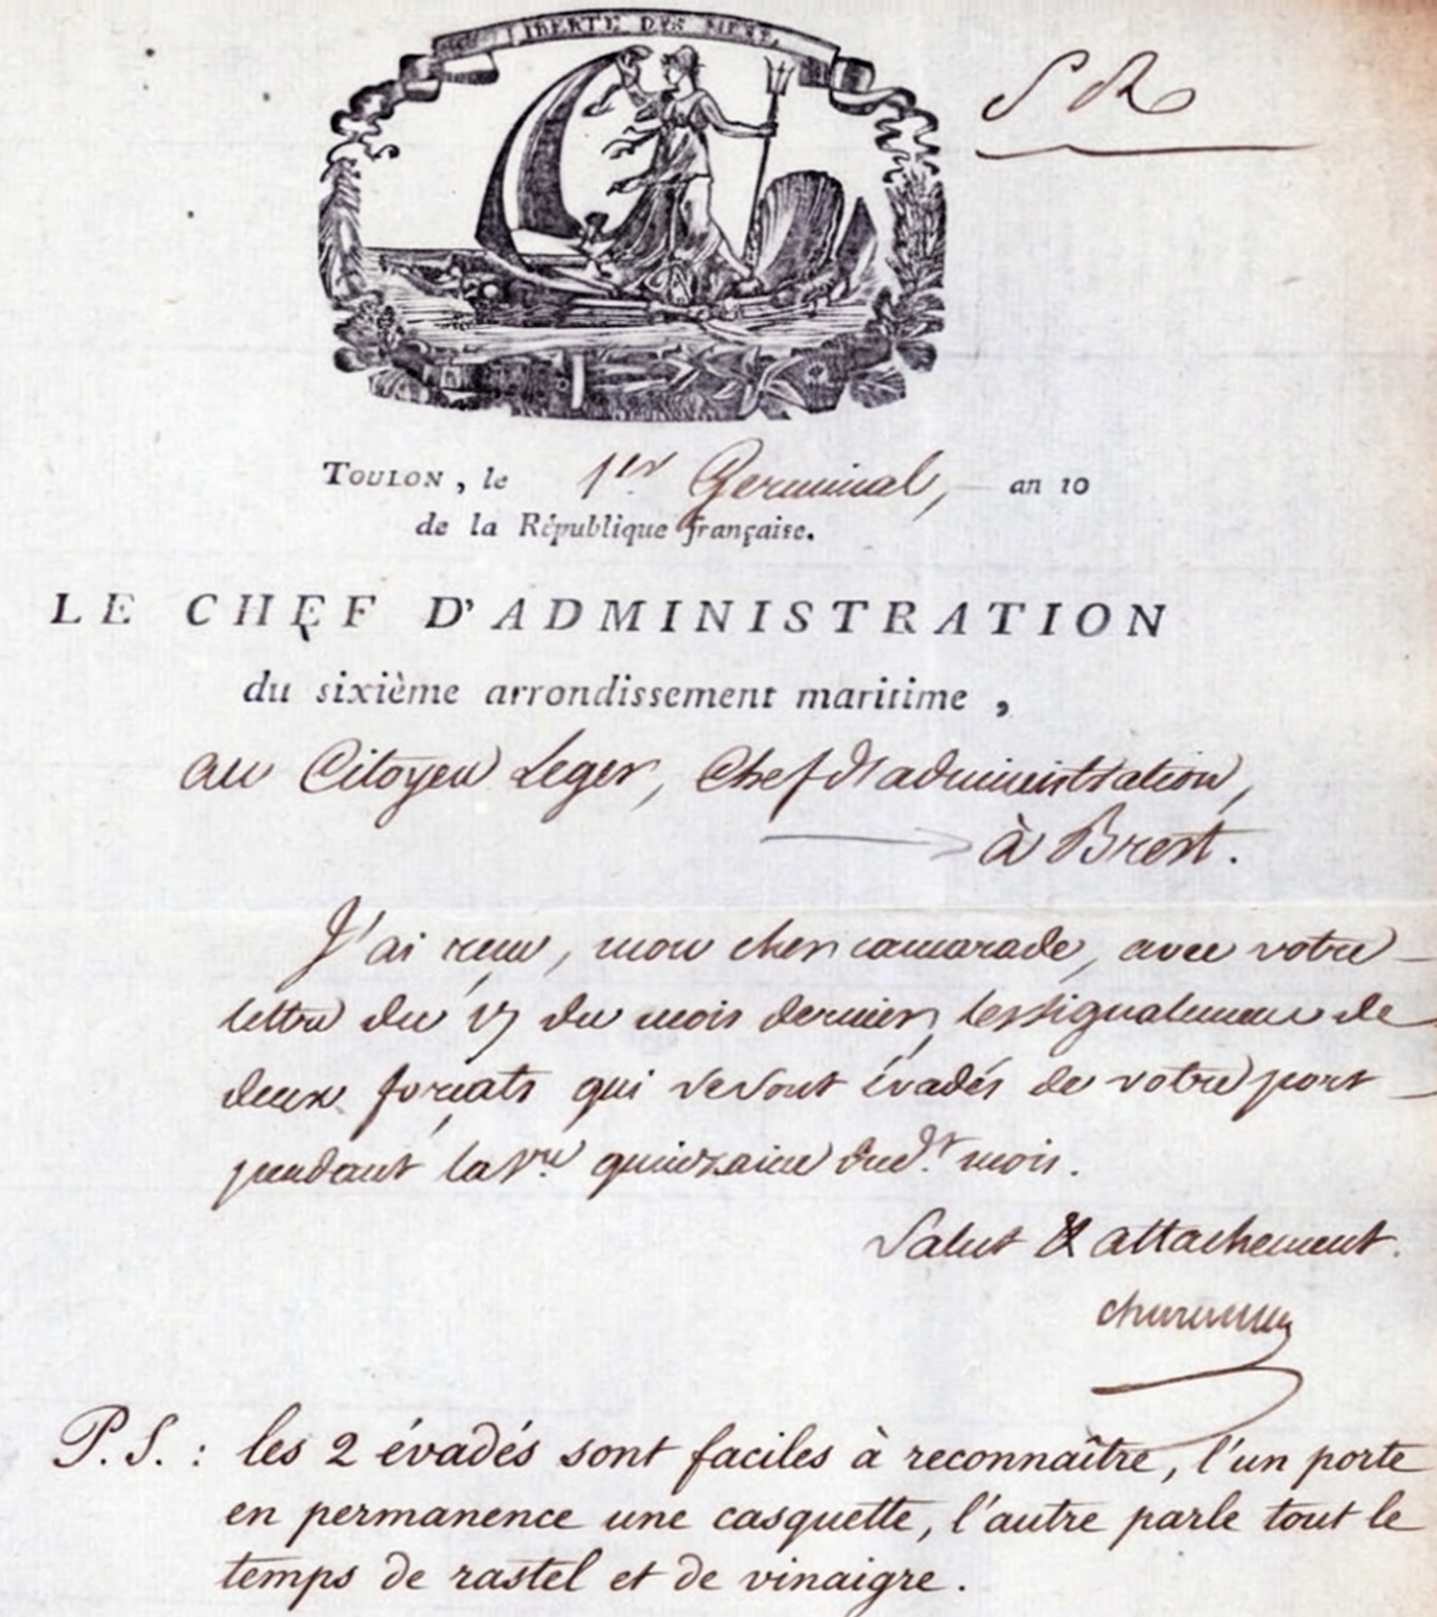 LIBERTÉ DES MERS.
S R
TOULON, le 1er Germinal, an 10
de la République française.
LE CHEF D'ADMINISTRATION
du sixième arrondissement maritime,
au Citoyen Leger, Chef d'administration,
à Brest.
J'ai reçu, mon cher camarade, avec votre
lettre du 17 du mois dernier, les signalemens de
deux forçats qui se sont évadés de votre port
pendant la 1re quinzaine dud.t mois.
Salut & attachement.
P.S. : les 2 évadés sont faciles à reconnaître, l'un porte
en permanence une casquette, l'autre parle tout le
temps de rastel et de vinaigre.